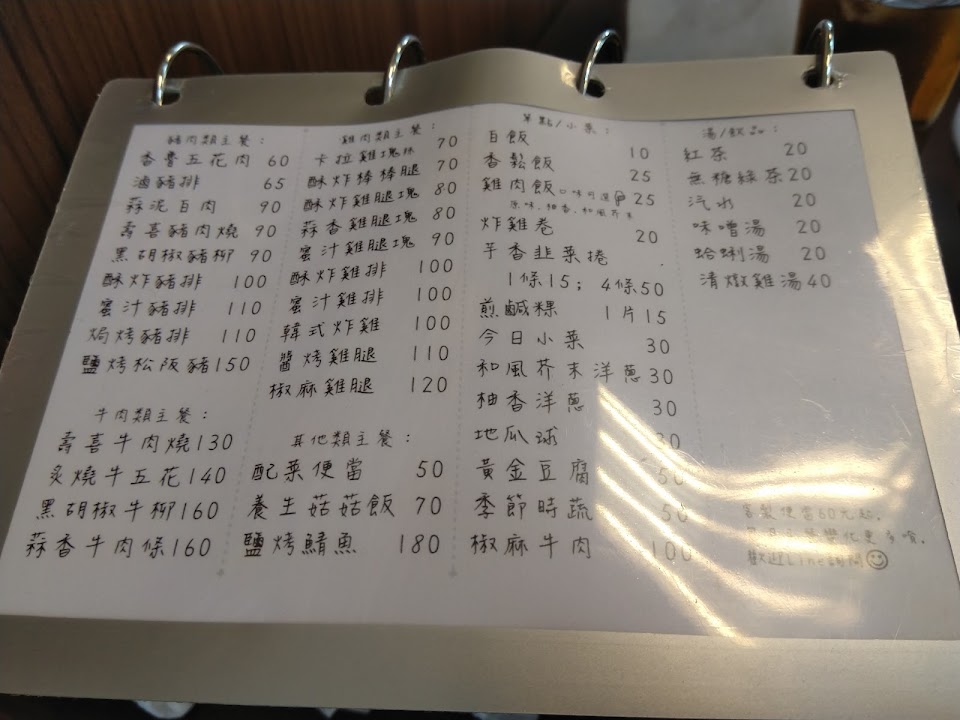 豬肉類主餐：
香魯五花肉 60
滷豬排 65
蒜泥白肉 90
壽喜豬肉燒 90
黑胡椒豬柳 90
酥炸豬排 100
蜜汁豬排 110
焗烤豬排 110
鹽烤松阪豬 150
牛肉類主餐：
壽喜牛肉燒 130
炙燒牛五花 140
黑胡椒牛柳 160
蒜香牛肉條 160
雞肉類主餐：
卡拉雞塊 70
酥炸棒棒腿 70
酥炸雞腿塊 80
蒜香雞腿塊 80
蜜汁雞腿塊 90
酥炸雞排 100
蜜汁雞排 100
韓式炸雞 100
醬烤雞腿 110
椒麻雞腿 120
其他類主餐：
配菜便當 50
養生菇菇飯 70
鹽烤鯖魚 180
單點/小菜：
白飯 10
香鬆飯 25
雞肉飯 口味可選 25
原味、柚香、和風芥末
炸雞卷 20
芋香韭菜捲
1條15； 4條50
煎鹹粿 1片15
今日小菜 30
和風芥末洋蔥 30
柚香洋蔥 30
地瓜球 30
黃金豆腐 50
季節時蔬 50
椒麻牛肉 100
湯/飲品：
紅茶 20
無糖綠茶 20
汽水 20
味噌湯 20
蛤蜊湯 20
清燉雞湯 40
客製便當60元起，
變化更多唷，
歡迎Line詢問